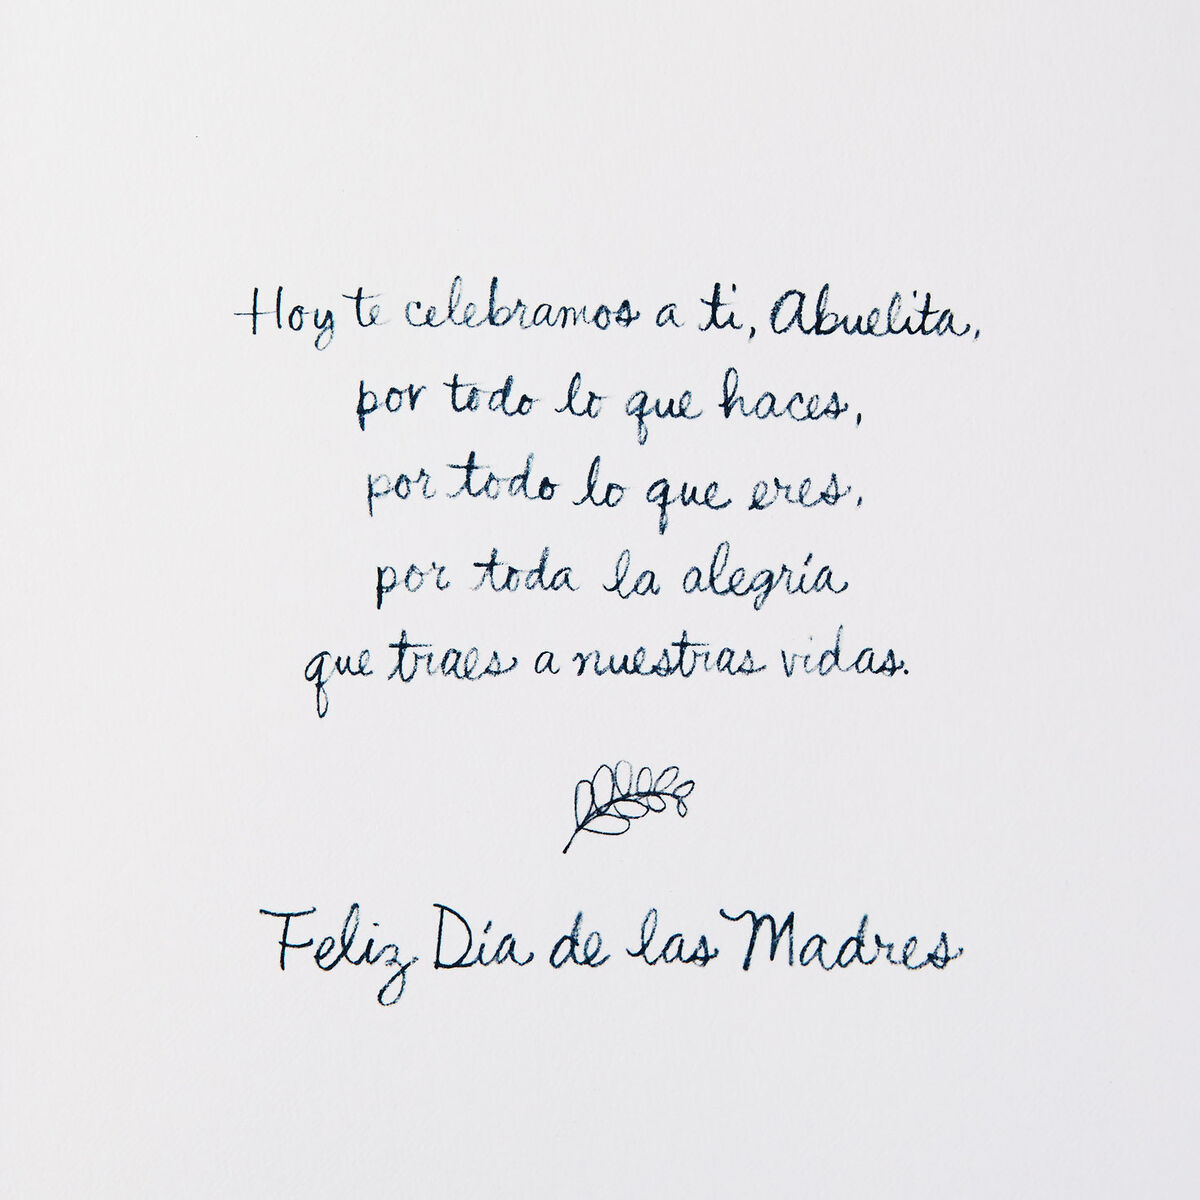 Hoy te celebramos a ti, Abuelita,
por todo lo que haces,
por todo lo que eres,
por toda la alegría
que traes a nuestras vidas.
Feliz Día de las Madres